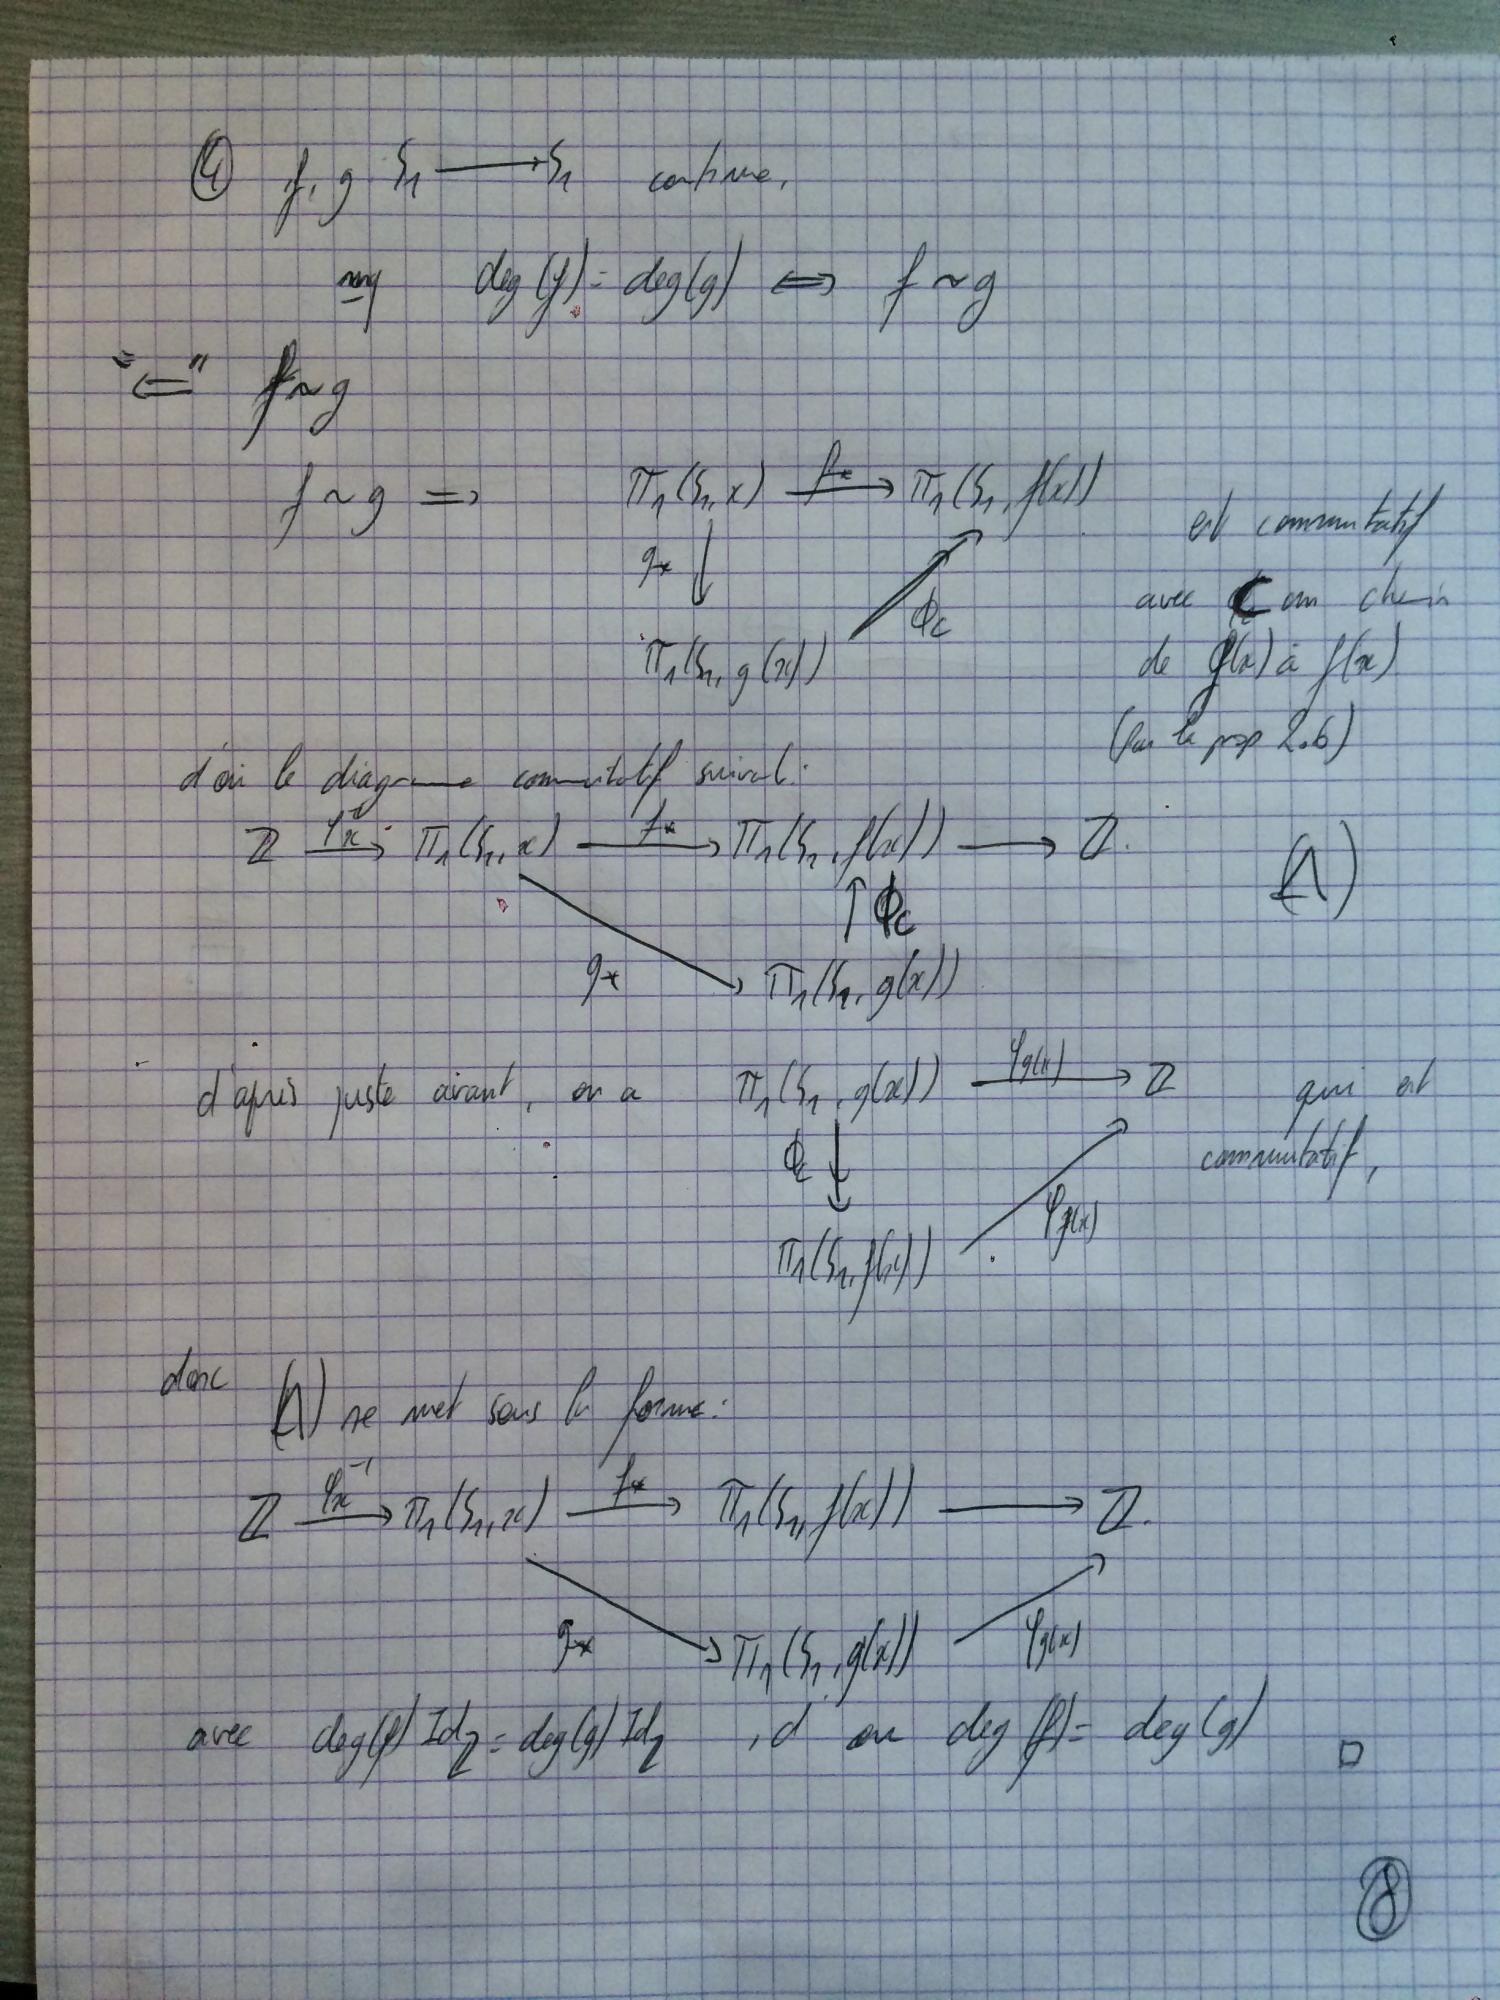 ④ f, g S₁ ⟶ S₁ continue,
mq deg(f) = deg(g) ⟺ f ~ g
"⟸" f ~ g
f ~ g ⟹ π₁(S₁, x) —f*→ π₁(S₁, f(x))
est commutatif
g* ↓ ↗ Φ_C
avec C un chemin
π₁(S₁, g(x))
de g(x) à f(x)
(par la prop 2.6)
d'où le diagramme commutatif suivant :
ℤ —φₓ⁻¹→ π₁(S₁, x) —f*→ π₁(S₁, f(x)) ⟶ ℤ. (1)
↑ Φ_C
g* ↘ π₁(S₁, g(x))
d'après juste avant, on a π₁(S₁, g(x)) —φ_g(x)→ ℤ qui est
Φ_C ↓ ↗ φ_f(x) commutatif,
π₁(S₁, f(x))
donc (1) se met sous la forme :
ℤ —φₓ⁻¹→ π₁(S₁, x) —f*→ π₁(S₁, f(x)) ⟶ ℤ.
g* ↘ π₁(S₁, g(x)) ↗ φ_g(x)
avec deg(f) Id_ℤ = deg(g) Id_ℤ , d'où deg(f) = deg(g) □
⑧